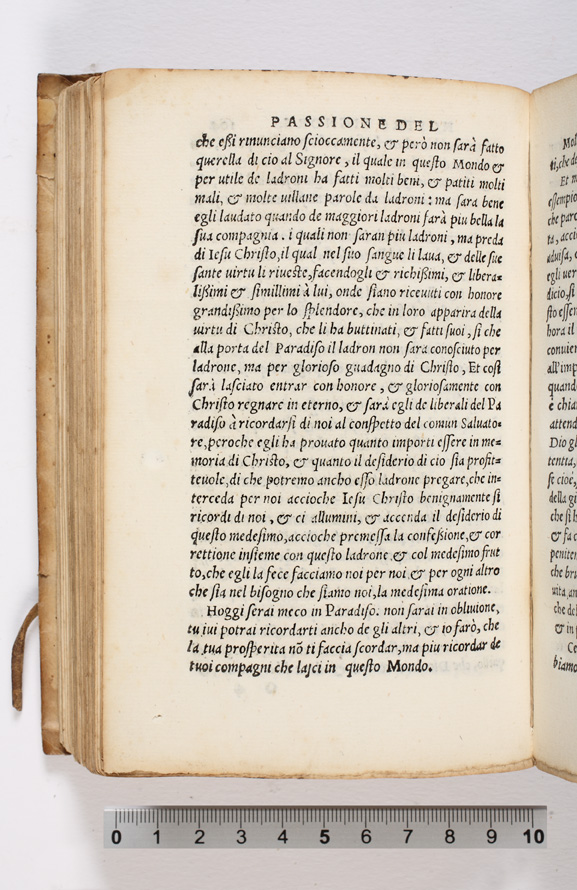 PASSIONE DEL
che eßi rinunciano scioccamente, & però non sarà fatto
querella di cio al Signore, il quale in questo Mondo &
per utile de ladroni ha fatti molti beni, & patiti molti
mali, & molte uillane parole da ladroni: ma sara bene
egli laudato quando de maggiori ladroni sarà piu bella la
sua compagnia. i quali non saran più ladroni, ma preda
di Iesu Christo, il qual nel suo sangue li laua, & delle sue
sante uirtu li riueste, facendogli & richißimi, & libera=
lißimi & simillimi à lui, onde siano riceuuti con honore
grandißimo per lo splendore, che in loro apparira della
uirtu di Christo, che li ha buttinati, & fatti suoi, si che
alla porta del Paradiso il ladron non sara conosciuto per
ladrone, ma per glorioso guadagno di Christo, Et così
sarà lasciato entrar con honore, & gloriosamente con
Christo regnare in eterno, & sarà egli de liberali del Pa
radiso à ricordarsi di noi al conspetto del comun Saluato=
re, peroche egli ha prouato quanto importi essere in me=
moria di Christo, & quanto il desiderio di cio sia profit=
teuole, di che potremo ancho esso ladrone pregare, che in=
terceda per noi accioche Iesu Christo benignamente si
ricordi di noi, & ci allumini, & accenda il desiderio di
questo medesimo, accioche premessa la confeßione, & cor
rettione insieme con questo ladrone & col medesimo frut
to, che egli la fece facciamo noi per noi & per ogni altro
che sia nel bisogno che siamo noi, la medesima oratione.
Hoggi serai meco in Paradiso. non sarai in obliuione,
tu iui potrai ricordarti ancho de gli altri, & io farò, che
la tua prosperita nõ ti faccia scordar, ma piu ricordar de
tuoi compagni che lasci in questo Mondo.
0 1 2 3 4 5 6 7 8 9 10